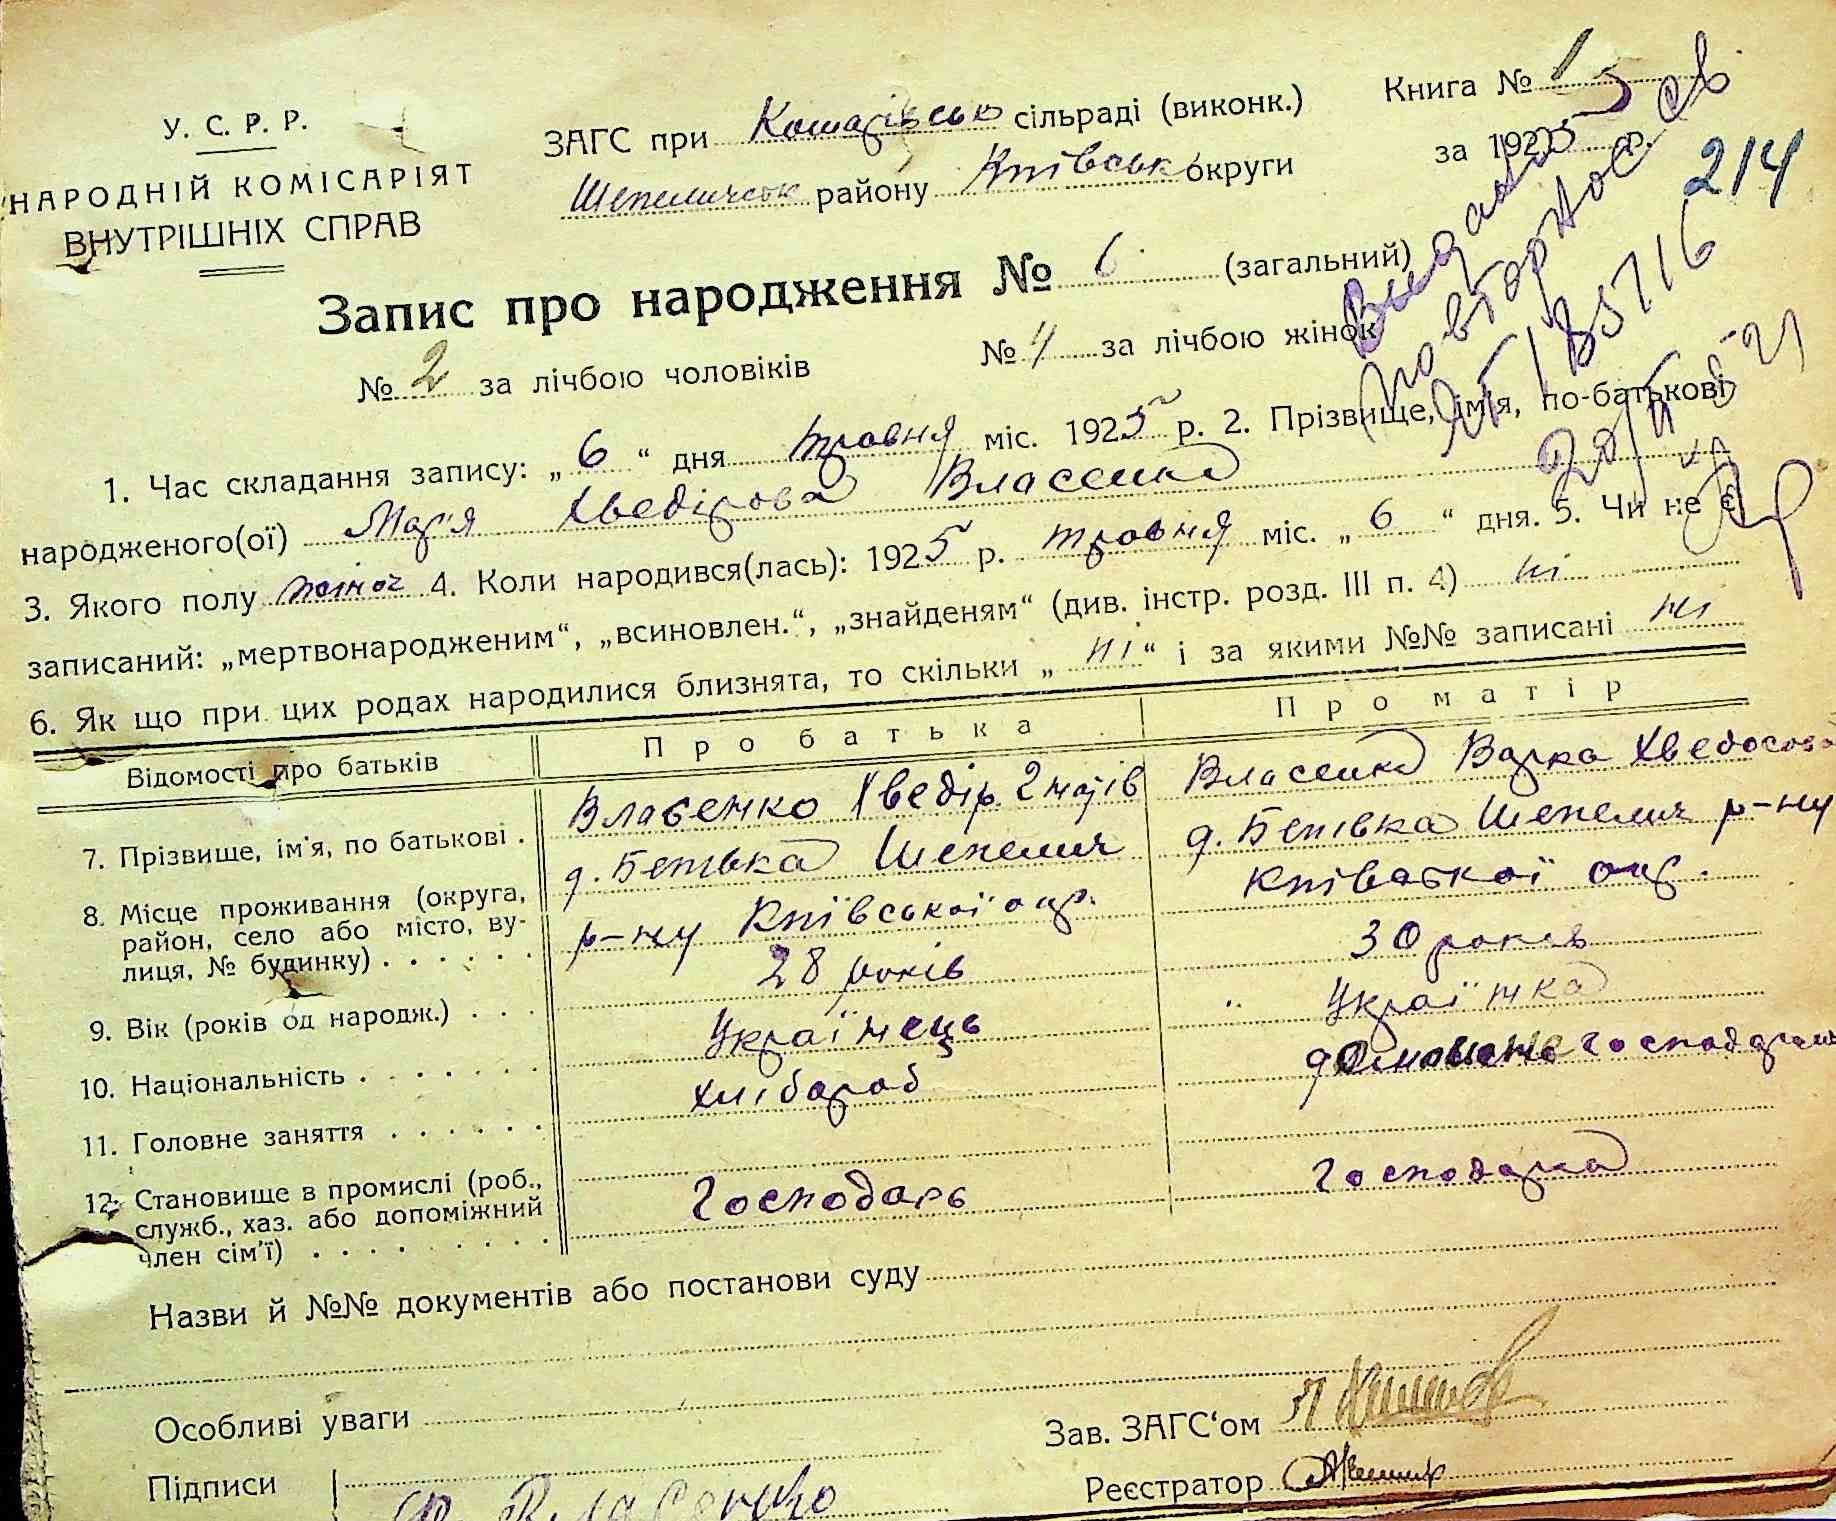 У. С. Р. Р.
НАРОДНІЙ КОМІСАРІЯТ
ВНУТРІШНІХ СПРАВ
ЗАГС при Кошарівськ сільраді (виконк.)
Шепеличськ району Київськ округи
Книга № 1
за 1925 р.
214
Видано
повторное св
35716
Запис про народження № 6 (загальний)
№ 2 за лічбою чоловіків № 4 за лічбою жінок
1. Час складання запису: „ 6 “ дня травня міс. 1925 р. 2. Прізвище, ім'я, по-батькові
народженого(ої) Мар'я Хведірова Власенко
3. Якого полу жіноч 4. Коли народився(лась): 1925 р. травня міс. „ 6 “ дня. 5. Чи не є
записаний: „мертвонародженим“, „всиновлен.“, „знайденям“ (див. інстр. розд. III п. 4) ні
6. Як що при цих родах народилися близнята, то скільки „ ні “ і за якими №№ записані ні
Відомості про батьків Про батька Про матір
7. Прізвище, ім'я, по батькові . Власенко Хведір Власенко Варка Хведосова
8. Місце проживання (округа, район, село або місто, вулиця, № будинку) . . . . . .
д. Бенівка Шепелич
р-ну Київської окр.
д. Бенівка Шепелич р-ну
Київської окр.
9. Вік (років од народж.) . . . 28 років 30 років
10. Національність . . . . . . . Українець Українка
11. Головне заняття . . . . . . Хлібороб господар
12. Становище в промислі (роб., служб., хаз. або допоміжний член сім'ї) . . . . . . . . . Господарь Господарка
Назви й №№ документів або постанови суду
Особливі уваги
Зав. ЗАГС‘ом
Підписи Власенко
Реєстратор